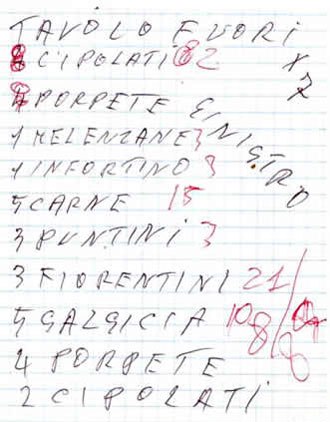 TAVOLO FUORI
8 CIPOLATI 82 X 7
PORPETE SINISTRO
1 MELENZANE 3
1 INFORTINO 3
5 CARNE 15
3 PUNTINI 3
3 FIORENTINI 21
5 SALSICIA 108
4 PORPETE
2 CIPOLATI